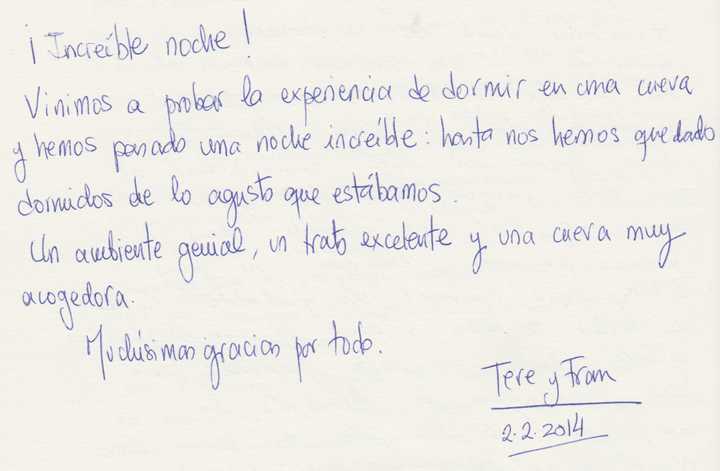 ¡Increíble noche!
Vinimos a probar la experiencia de dormir en una cueva
y hemos pasado una noche increíble: hasta nos hemos quedado
dormidos de lo agusto que estábamos.
Un ambiente genial, un trato excelente y una cueva muy
acogedora.
Muchísimas gracias por todo.
Tere y Fran
2.2.2014